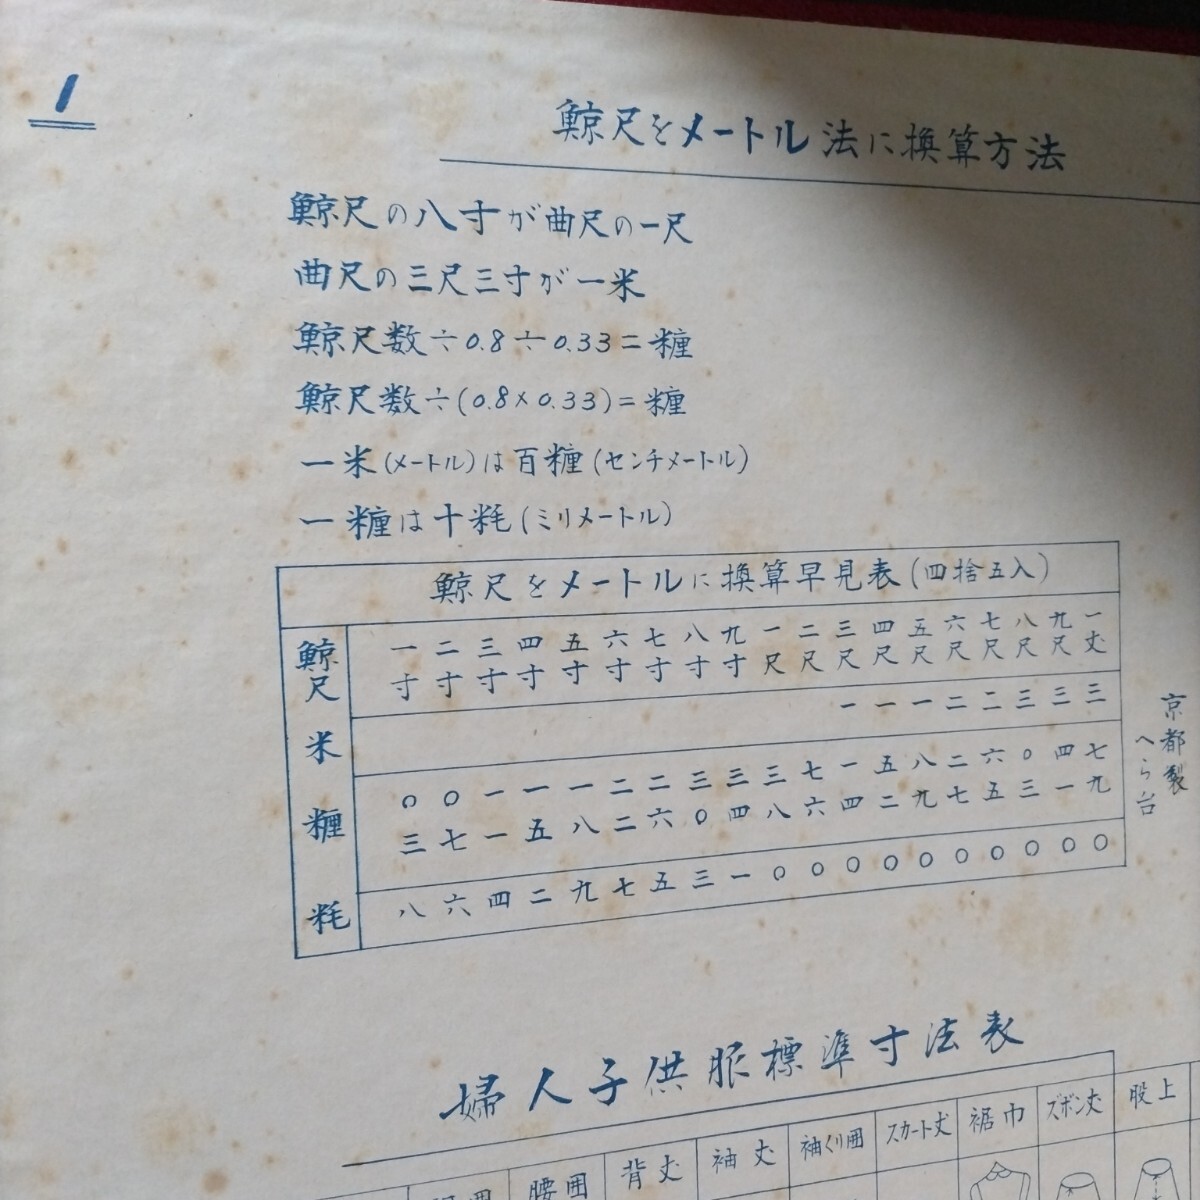 1
鯨尺をメートル法に換算方法
鯨尺の八寸が曲尺の一尺
曲尺の三尺三寸が一米
鯨尺数÷0.8÷0.33=糎
鯨尺数÷(0.8×0.33)=糎
一米(メートル)は百糎(センチメートル)
一糎は十粍(ミリメートル)
鯨尺をメートルに換算早見表(四捨五入)
鯨尺 一寸 二寸 三寸 四寸 五寸 六寸 七寸 八寸 九寸 一尺 二尺 三尺 四尺 五尺 六尺 七尺 八尺 九尺 一丈
米 一 一 一 二 二 三 三 三
糎 〇三 〇七 一一 一五 一八 二二 二六 三〇 三四 三八 七六 一四 五二 八九 二七 六五 〇三 四一 七九
粍 八 六 四 二 九 七 五 三 一 〇 〇 〇 〇 〇 〇 〇 〇 〇 〇
京都製
へら台
婦人子供服標準寸法表
腰囲 背丈 袖丈 袖ぐり囲 スカート丈 裾巾 ズボン丈 股上